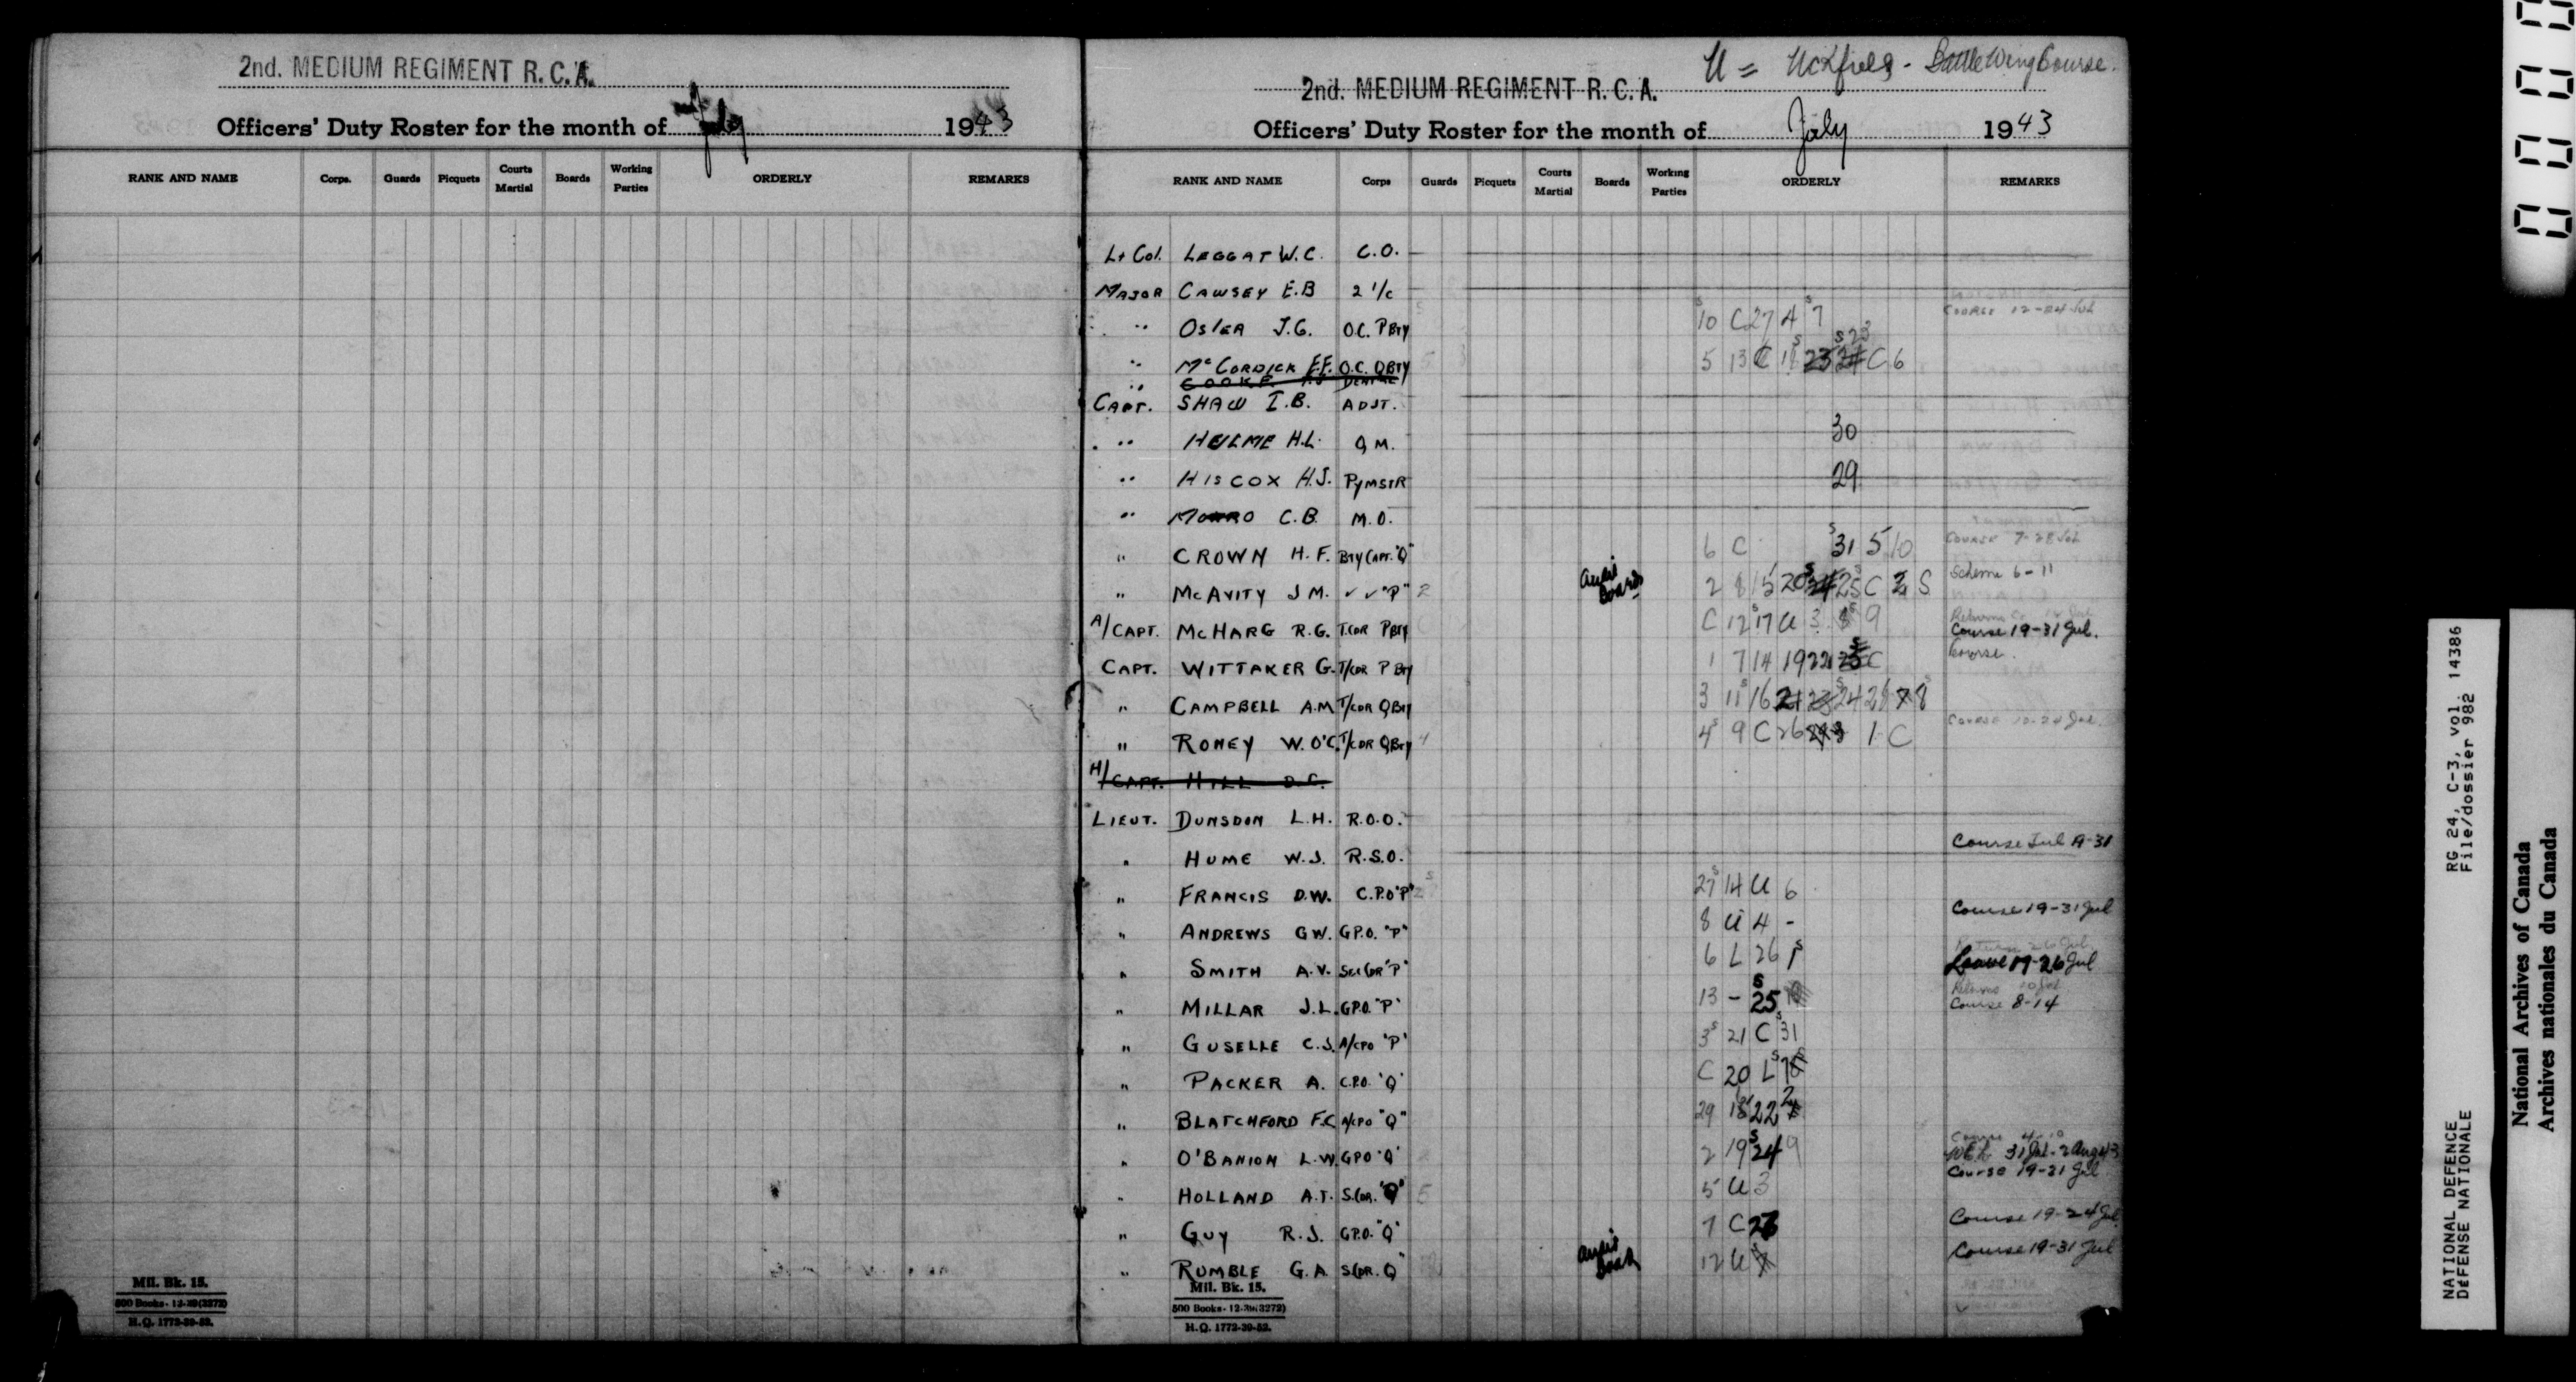 2nd. MEDIUM REGIMENT R. C. A.
Officers' Duty Roster for the month of July 1943
RANK AND NAME Corps. Guards Picquets Courts Martial Boards Working Parties ORDERLY REMARKS
Mil. Bk. 15.
500 Books - 12-39 (3272)
H.Q. 1772-39-52.
U = Uckfield - Battle Wing Course.
2nd. MEDIUM REGIMENT R. C. A.
Officers' Duty Roster for the month of July 1943
RANK AND NAME Corps Guards Picquets Courts Martial Boards Working Parties ORDERLY REMARKS
Lt Col. LEGGAT W.C. C.O.
MAJOR CAWSEY E.B 2 I/C
" OSLER J.G. O.C. P BTY 10 C 27 4 7 COURSE 12-24 Jul
" McCORDICK F.F. O.C. Q BTY 5 13 C C 6
" COOKE DENTAL
CAPT. SHAW I.B. ADJT.
" HEILME H.L. Q M. 30
" HISCOX H.J. PYMSTR 29
" C.B. M.O.
" CROWN H.F. BTY CAPT. "Q" 6 C S 31 5 10 COURSE 7-28 Jul
" McAVITY J M. ✓ ✓ "P" 2 Audit Board 2 8 15 20 25 C 2 S Scheme 6-11
A/CAPT. McHARG R.G. T.CDR P BTY C 12 17 U 3 9 Course 19-31 Jul.
CAPT. WITTAKER G. T/CDR P BTY 1 7 14 19 22 C Course.
" CAMPBELL A.M T/CDR Q BTY 3 11 16 21 24 8
" RONEY W. O'C. T/CDR Q BTY 4 4 9 C 26 1 C COURSE
H/CAPT. HILL D.C.
LIEUT. DUNSDON L.H. R.O.O.
" HUME W.J. R.S.O. Course Jul 19-31
" FRANCIS D.W. C.P.O "P" 27 14 U 6
" ANDREWS G W. G P.O. "P" 8 U 4 - Course 19-31 Jul
" SMITH A.V. SEC CDR "P" 6 L 26 Leave 19-26 Jul
" MILLAR J.L. G P.O. "P" 13 - 25 Course 8-14
" GUSELLE C.J. A/CPO "P" 3 21 C 31
" PACKER A. C.P.O. "Q" C 20 L
" BLATCHFORD F.C. A/CPO "Q" 29 18 22
" O'BANION L.W. GPO "Q" 2 19 24 9 31 Jul - 2 Aug 43
" HOLLAND A.T. S.CDR. "Q" 5 5 U 3 Course 19-31 Jul
" GUY R.J. G P.O. "Q" 7 C Course 19-24 Jul
" RUMBLE G.A. S.CDR. Q" Audit Board 12 U Course 19-31 Jul
Mil. Bk. 15.
500 Books - 12-39 (3272)
H.Q. 1772-39-52.
NATIONAL DEFENCE RG 24, C-3, vol. 14386
DÉFENSE NATIONALE File/dossier 982
National Archives of Canada
Archives nationales du Canada